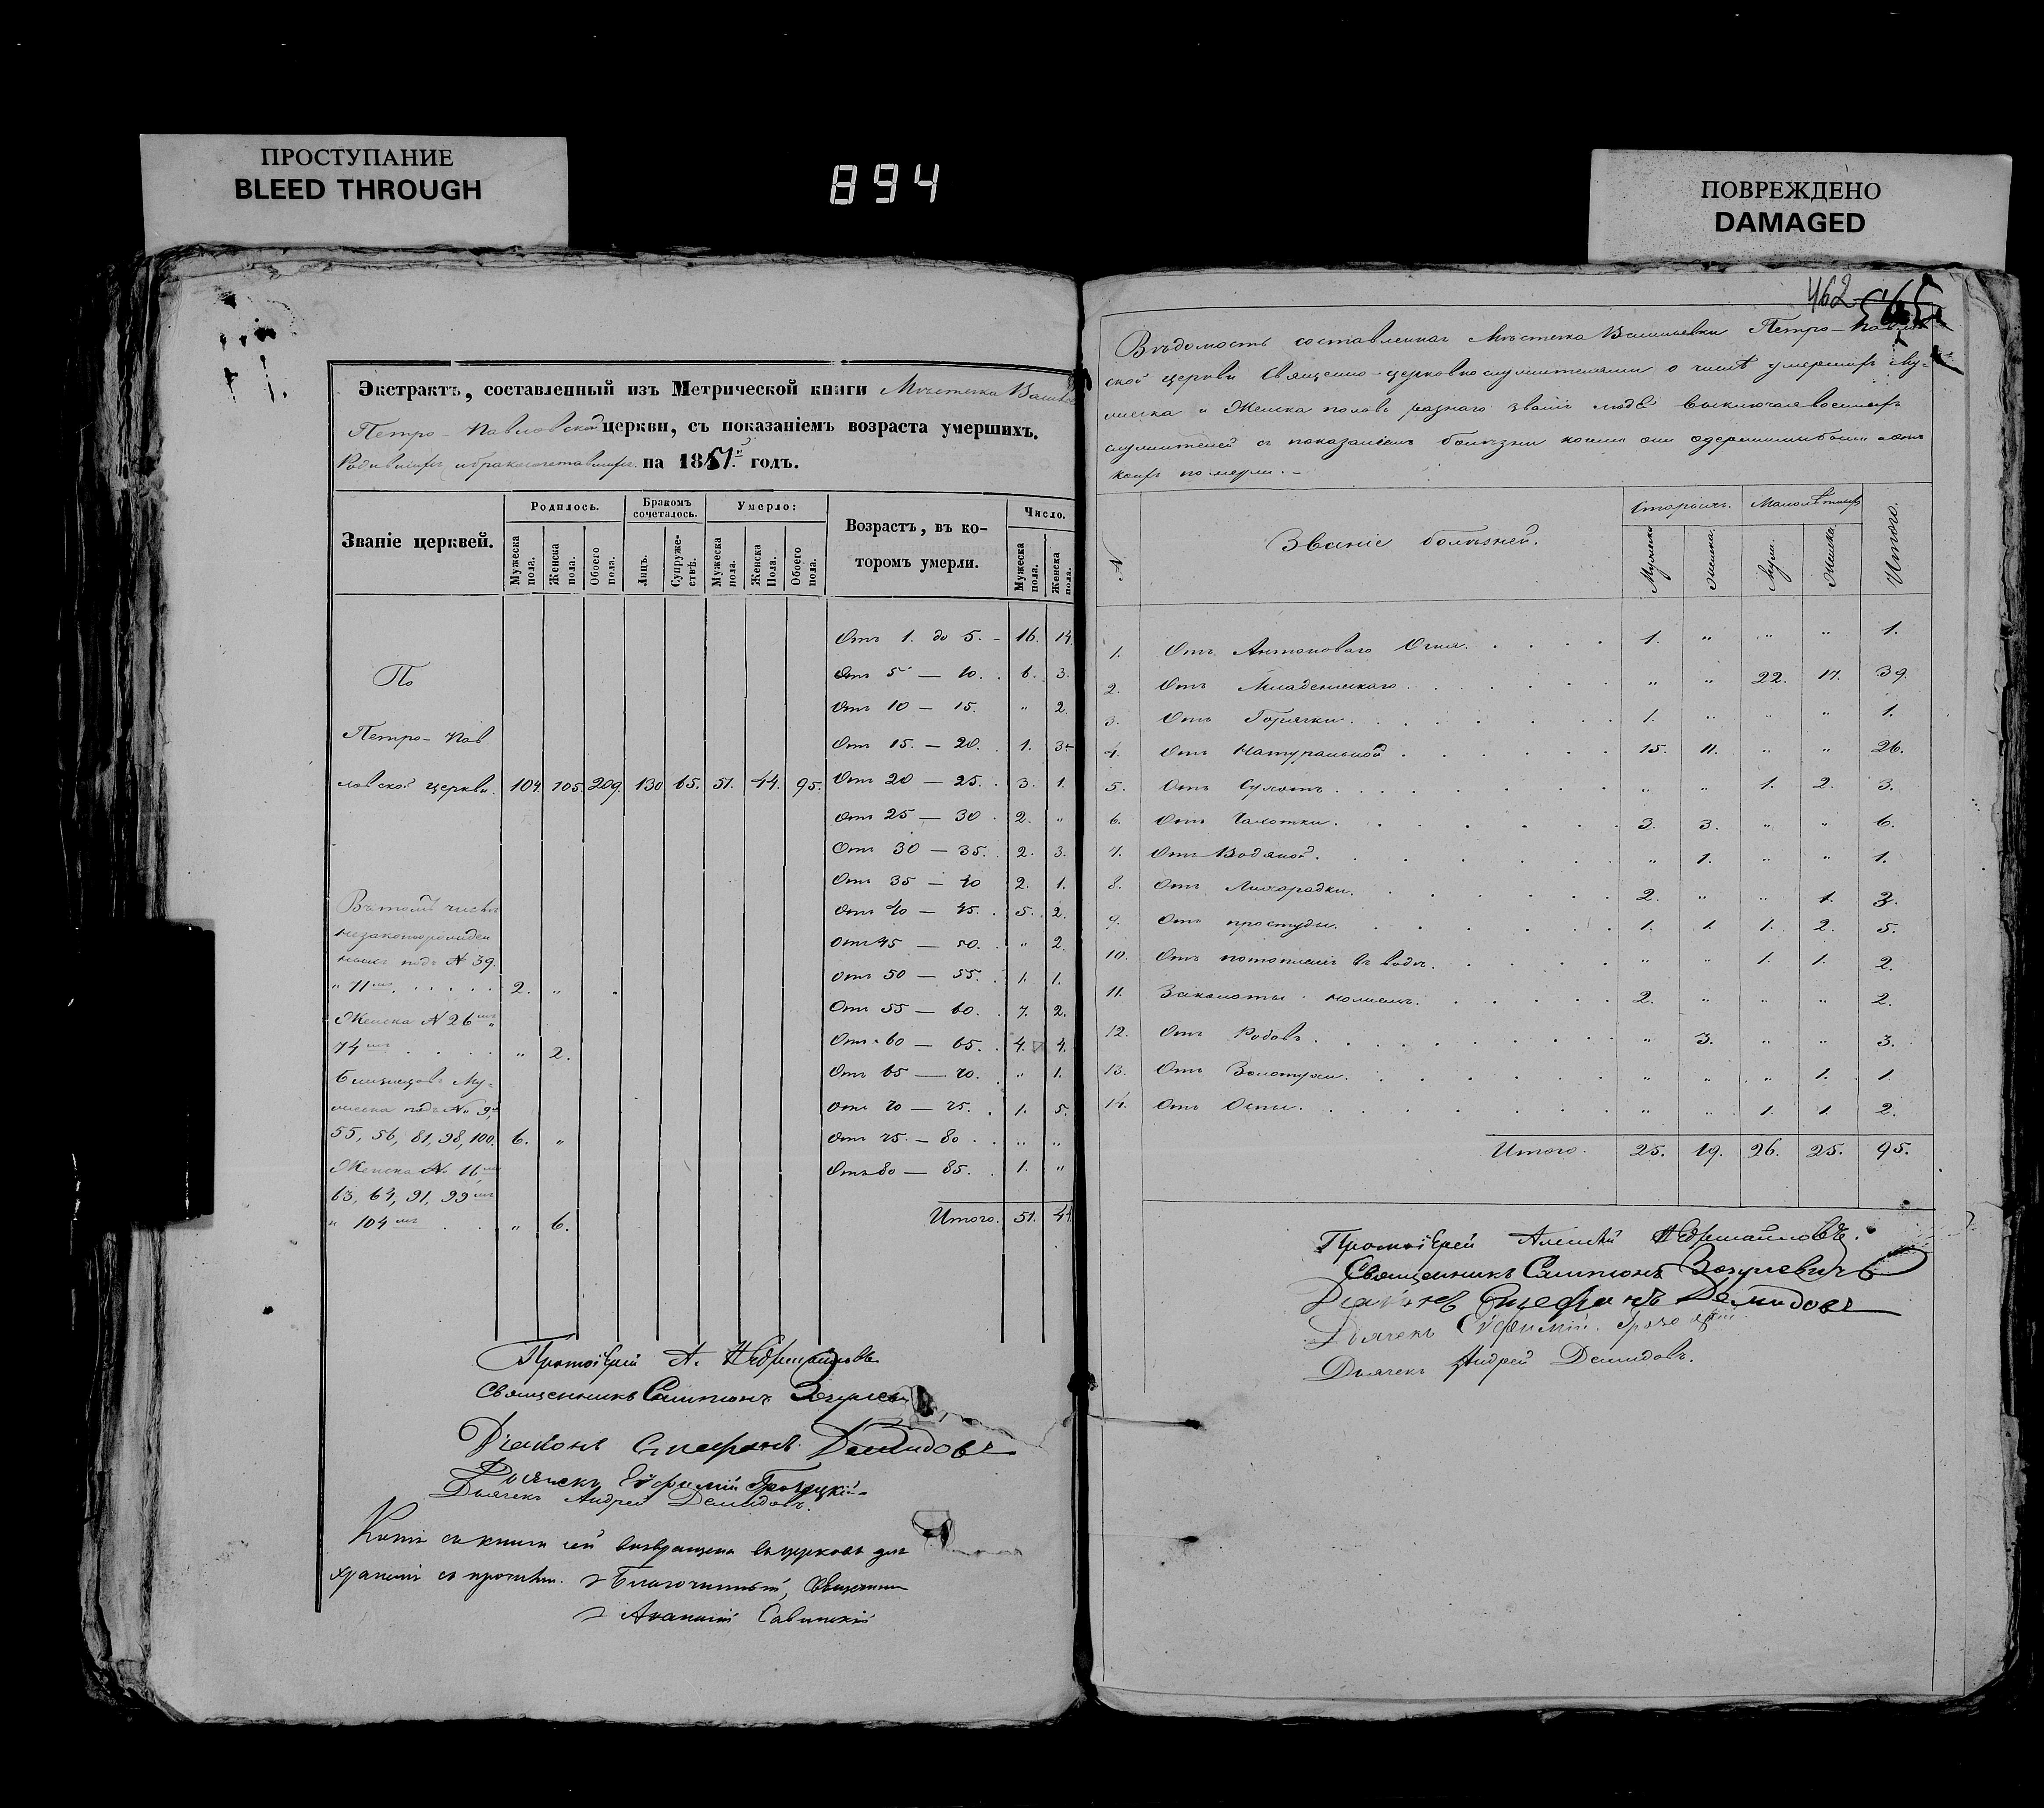 ПРОСТУПАНИЕ
BLEED THROUGH
894
ПОВРЕЖДЕНО
DAMAGED
Экстрактъ, составленный изъ Метрической книги Мѣстечка
Петро-Павловской церкви, съ показаніемъ возраста умершихъ.
Родившихъ и бракосочетавшихъ на 1851й годъ.
Званіе церквей.
Родилось.
Бракомъ сочеталось.
Умерло:
Возрастъ, въ ко-
торомъ умерли.
Число.
Мужеска пола.
Женска пола.
Обоего пола.
Лицъ.
Супруже-ствъ.
Мужеска пола.
Женска Пола.
Обоего пола.
Мужеска пола.
Женска пола.
Отъ 1. до 5. - 16. 14.
По
Отъ 5 — 10. 6. 3.
Отъ 10 — 15. " 2.
Петро-Пав
Отъ 15. — 20. 1. 3.
ловской церкви. 104. 105. 209. 130 65. 51. 44. 95. Отъ 20 — 25. 3. 1.
Отъ 25 — 30 2. "
Отъ 30 — 35. 2. 3.
Отъ 35 — 40 2. 1.
Въ томъ числѣ
Отъ 40 — 45. 5. 2.
незаконорожден
Отъ 45 — 50. " 2.
ныхъ подъ № 39.
Отъ 50 — 55. 1. 1.
" 71 2. "
Отъ 55 — 60. 7. 2.
Женска № 26
Отъ 60 — 65. 4. 4.
74 " 2.
Отъ 65 — 70. " 1.
Близнецовъ Му-
жеска подъ № 9,
Отъ 70 — 75. 1. 5.
55, 56, 81, 98, 100. 6. "
Отъ 75. — 80 " "
Женска №
Отъ 80 — 85. 1. "
63, 64, 91, 99
" 104 " 6.
Итого. 51. 44
Протоіерей А.
Священникъ Сампсонъ
Діаконъ Стефанъ Демидовъ
Дьячекъ Евфимій
Дьячекъ Андрей Демидовъ.
Копія съ книги сей возвращена въ церковь для
храненія Благочинный, Священникъ
Ананій Савинскій
462
Вѣдомость составленная Мѣстечка Васильевки Петро-Павлов
ской церкви Священно-церковнослужителями о числѣ умершихъ Му-
жеска и Женска половъ разнаго званія людей выключая военныхъ
служителей съ показаніемъ болѣзни коими они одержимы были и отъ
коихъ померли. -
N
Званіе болѣзней.
Старыхъ.
Малолѣтныхъ
Итого.
Мужеска
Женска.
Муж.
Женска.
1. Отъ Антонова Огня. 1. " " " 1.
2. Отъ Младенческаго. " " 22. 17. 39.
3. Отъ Горячки. 1. " " " 1.
4. Отъ Натуральной 15. 11. " " 26.
5. Отъ Сухотъ. " " 1. 2. 3.
6. Отъ Чахотки. 3. 3. " " 6.
7. Отъ Водяной. " 1. " " 1.
8. Отъ Лихорадки. 2. " " 1. 3.
9. Отъ простуды. 1. 1. 1. 2. 5.
10. Отъ потопленія въ водѣ. " " 1. 1. 2.
11. 2. " " " 2.
12. Отъ Родовъ. " 3. " " 3.
13. Отъ Золотухи. " " " 1. 1.
14. Отъ Оспы. " " 1. 1. 2.
Итого. 25. 19. 26. 25. 95.
Протоіерей Алексѣй
Священникъ Сампсонъ
Діаконъ Стефанъ Демидовъ
Дьячекъ Евфимій
Дьячекъ Андрей Демидовъ.